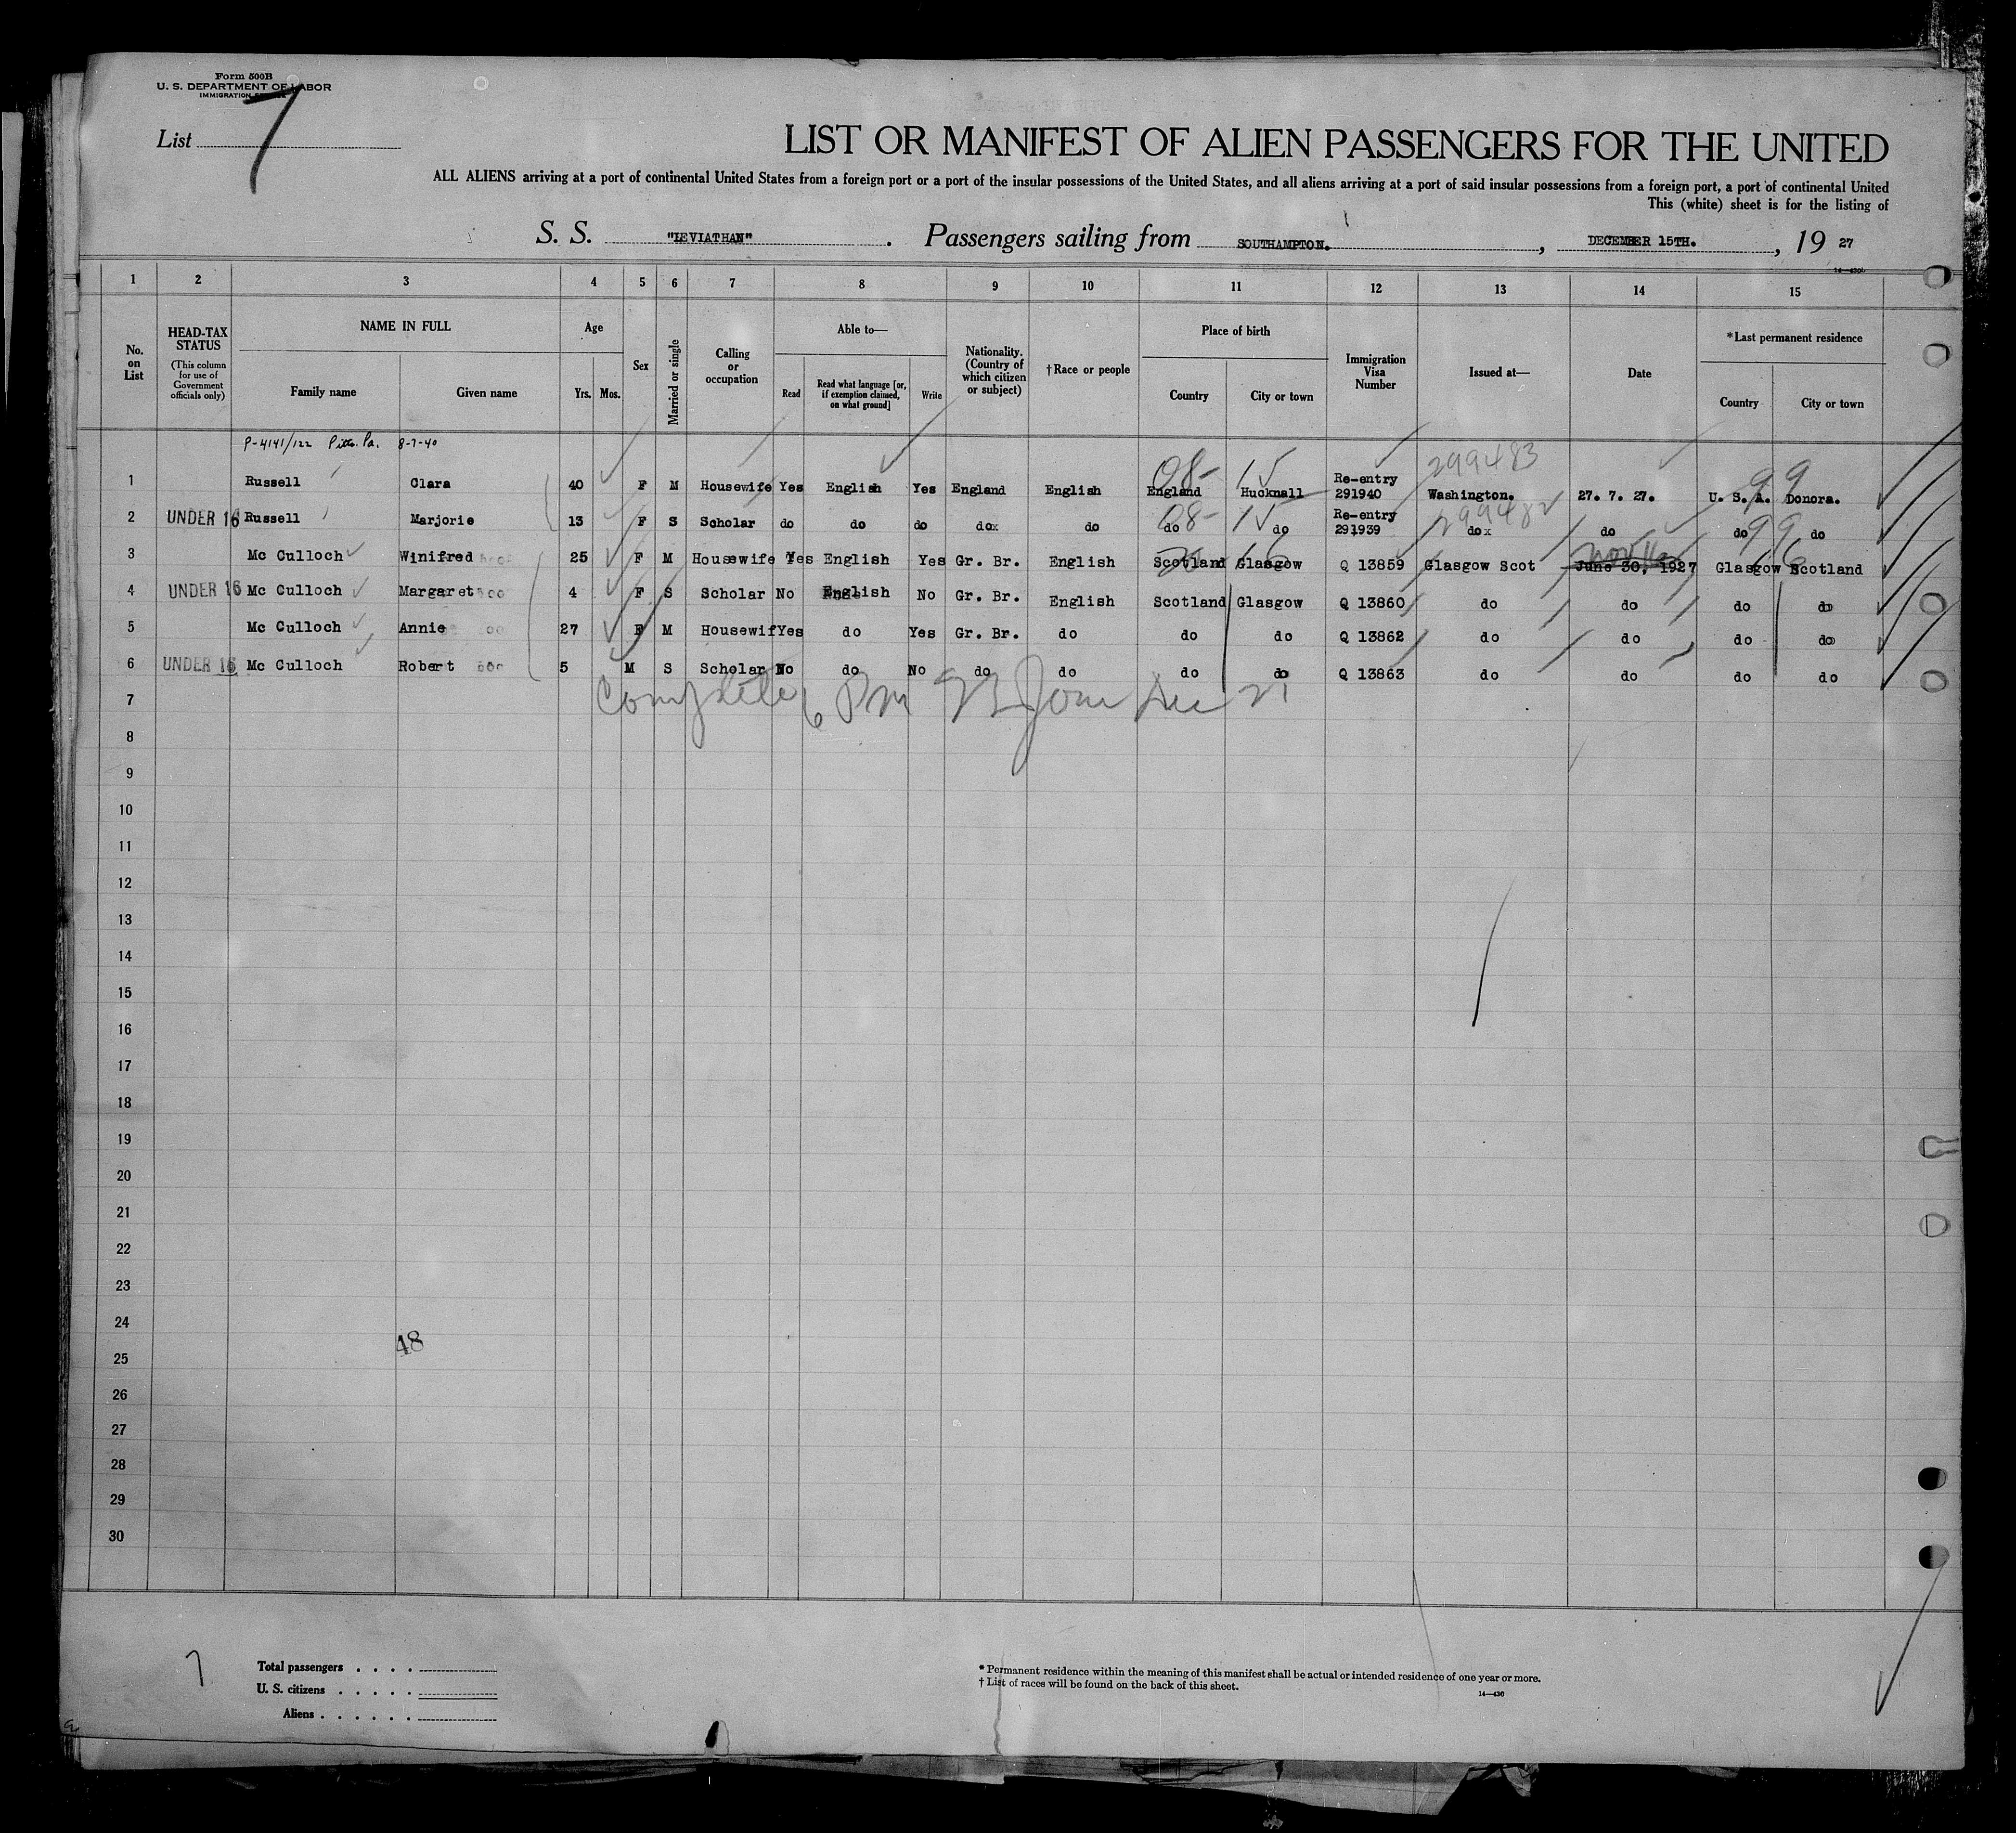 Form 500B
U. S. DEPARTMENT OF LABOR
IMMIGRATION
List 7
LIST OR MANIFEST OF ALIEN PASSENGERS FOR THE UNITED
ALL ALIENS arriving at a port of continental United States from a foreign port or a port of the insular possessions of the United States, and all aliens arriving at a port of said insular possessions from a foreign port, a port of continental United
This (white) sheet is for the listing of
S. S. "LEVIATHAN". Passengers sailing from SOUTHAMPTON., DECEMBER 15TH., 19 27
1 2 3 4 5 6 7 8 9 10 11 12 13 14 15
No. on List
HEAD-TAX STATUS
(This column for use of Government officials only)
NAME IN FULL
Family name Given name
Age
Yrs. Mos.
Sex
Married or single
Calling or occupation
Able to—
Read
Read what language [or, if exemption claimed, on what ground]
Write
Nationality. (Country of which citizen or subject)
†Race or people
Place of birth
Country City or town
Immigration Visa Number
Issued at—
Date
*Last permanent residence
Country City or town
P-4141/122 Pitts. Pa. 8-7-40
299483
08- 15 99
1 Russell Clara 40 F M Housewife Yes English Yes England English England Hucknall Re-entry 291940 Washington. 27. 7. 27. U. S. A. Donora.
08- 15 299482 99
2 UNDER 16 Russell Marjorie 13 F S Scholar do do do dox do do do Re-entry 291939 dox do do do
3 Mc Culloch Winifred 25 F M Housewife Yes English Yes Gr. Br. English Scotland Glasgow Q 13859 Glasgow Scot June 30, 1927 Glasgow Scotland
4 UNDER 16 Mc Culloch Margaret 4 F S Scholar No English No Gr. Br. English Scotland Glasgow Q 13860 do do do do
5 Mc Culloch Annie 27 F M Housewif Yes do Yes Gr. Br. do do do Q 13862 do do do do
6 UNDER 16 Mc Culloch Robert 5 M S Scholar No do No do do do do Q 13863 do do do do
7
8
9
10
11
12
13
14
15
16
17
18
19
20
21
22
23
24
48
25
26
27
28
29
30
7
Total passengers . . . .
U. S. citizens . . . . .
Aliens . . . . . .
* Permanent residence within the meaning of this manifest shall be actual or intended residence of one year or more.
† List of races will be found on the back of this sheet.
14—430